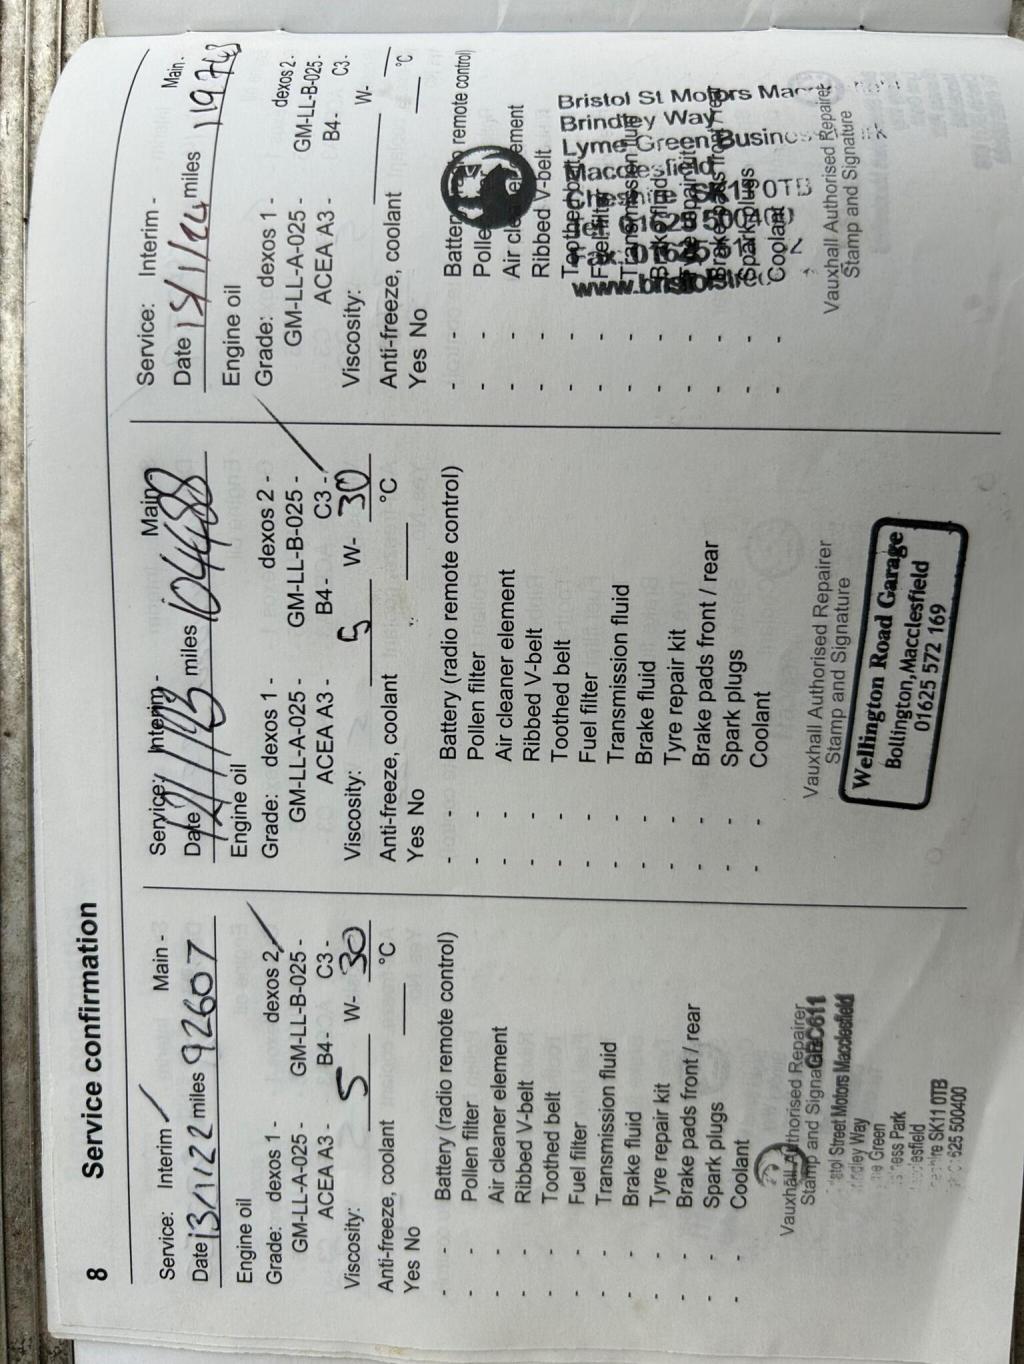 8 Service confirmation
Service: Interim / Main -
Date 13/1/22 miles 92607
Engine oil
Grade: dexos 1 - dexos 2 /
GM-LL-A-025 - GM-LL-B-025 -
ACEA A3 - B4 - C3 -
Viscosity: 5 W- 30
Anti-freeze, coolant °C
Yes No
- - Battery (radio remote control)
- - Pollen filter
- - Air cleaner element
- - Ribbed V-belt
- - Toothed belt
- - Fuel filter
- - Transmission fluid
- - Brake fluid
- - Tyre repair kit
- - Brake pads front / rear
- - Spark plugs
- - Coolant
Vauxhall Authorised Repairer
Stamp and Signature
GBC611
Street Motors Macclesfield
Way
Green
Park
SK11 0TB
500400
Service: Interim - Main -
Date miles 104488
Engine oil
Grade: dexos 1 - dexos 2 -
GM-LL-A-025 - GM-LL-B-025 -
ACEA A3 - B4 - C3 - /
Viscosity: 5 W- 30
Anti-freeze, coolant °C
Yes No
- - Battery (radio remote control)
- - Pollen filter
- - Air cleaner element
- - Ribbed V-belt
- - Toothed belt
- - Fuel filter
- - Transmission fluid
- - Brake fluid
- - Tyre repair kit
- - Brake pads front / rear
- - Spark plugs
- - Coolant
Vauxhall Authorised Repairer
Stamp and Signature
Wellington Road Garage
Bollington, Macclesfield
01625 572 169
Service: Interim - Main -
Date 15/1/24 miles 119743
Engine oil
Grade: dexos 1 - dexos 2 -
GM-LL-A-025 - GM-LL-B-025 -
ACEA A3 - B4 - C3 -
Viscosity: W-
Anti-freeze, coolant °C
Yes No
- - Battery (radio remote control)
- - Pollen
- - Air cleaner element
- - Ribbed V-belt
- - Toothed belt
- - Fuel filter
- - Transmission fluid
- - Brake fluid
- - Tyre repair kit
- - Brake pads front / rear
- - Spark plugs
- - Coolant
Vauxhall Authorised Repairer
Stamp and Signature
Bristol St Motors
Brindley Way
Lyme Green Business
Macclesfield
Cheshire SK11 0TB
Tel: 01625 500400
Fax: 01625